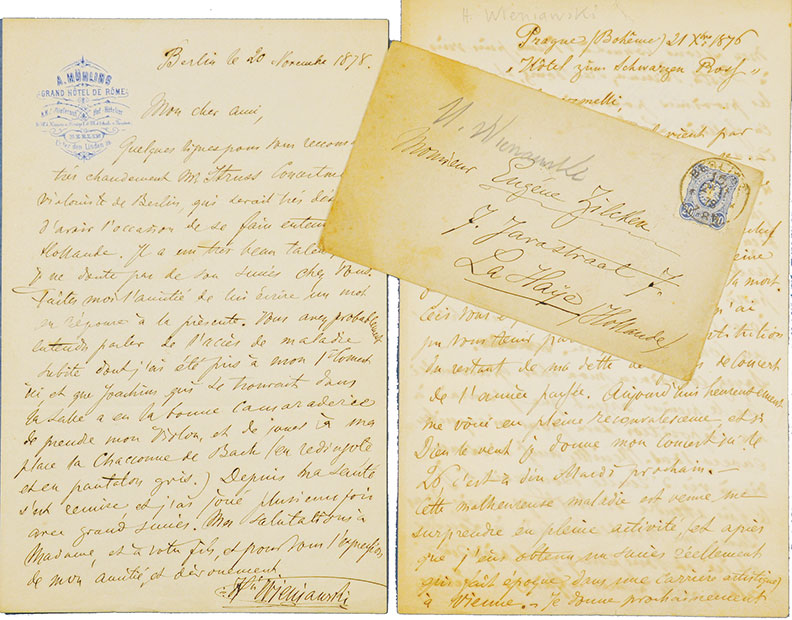 A. MÜHLING
GRAND HÔTEL DE RÔME
BERLIN
Unter den Linden 39
Berlin le 20 Novembre 1878.
Mon cher ami,
Quelques lignes pour vous recom
très chaudement Mr Struss Concertm
violoniste de Berlin, qui serait très dés
d'avoir l'occasion de se faire enten
Hollande. Il a un très beau talen
je ne doute pas de son succès chez Vous.
Faites moi l'amitié de lui écrire un mot
en réponse à la présente. Vous avez probablement
entendu parler de l'accès de maladie
subite dont j'ai été pris à mon 1er Concert
ici et que Joachim qui se trouvait dans
la salle a eu la bonne camaraderie
de prendre mon Violon, et de jouer à ma
place la Chaconne de Bach (en redingote
et en pantalon gris.) Depuis ma santé
s'est remise et j'ai joué plusieurs fois
avec grand succès. Mes salutations à
Madame, et à votre fils, et pour vous l'expression
de mon amitié, et dévouement.
Hri Wieniawski
H. Wieniawski
Monsieur Eugène Zilcken
7. Javastraat 7.
La Haye (Hollande)
BERLIN
H. Wieniawski
Prague (Bohême) 21 Xbre 1876
"Hôtel zum schwarzen Ross"
vient par
la mort.
j'ai
du restant de ma dette de concert
de l'année passée. Aujourd'hui heureusement
me voici en pleine reconvalescence, et si
Dieu le veut je donne mon Concert ici le
26 c'est à dire Mardi prochain.
Cette malheureuse maladie est venue me
surprendre en pleine activité, et après
que j'eus obtenu un succès réellement
qui fait époque dans une carrière artistique
à Vienne. Je donne prochainement